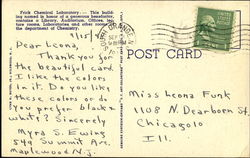 Frick Chemical Laboratory:- This build-
ing named in honor of a generous benefactor,
contains a Library, Auditorium, Offices, lec-
ture rooms, Laboratories and other rooms for
the department of Chemistry.
9/15/43
Dear Leona,
Thank you for
the beautiful card
I like the colors
in it. Do you like
these colors or do
you prefer black or
white? Sincerely
Myra S. Ewing
549 Summit Ave.
Maplewood N.J.
POST CARD
Miss Leona Funk
1108 N. Dearborn St.
Chicago 10
Ill.